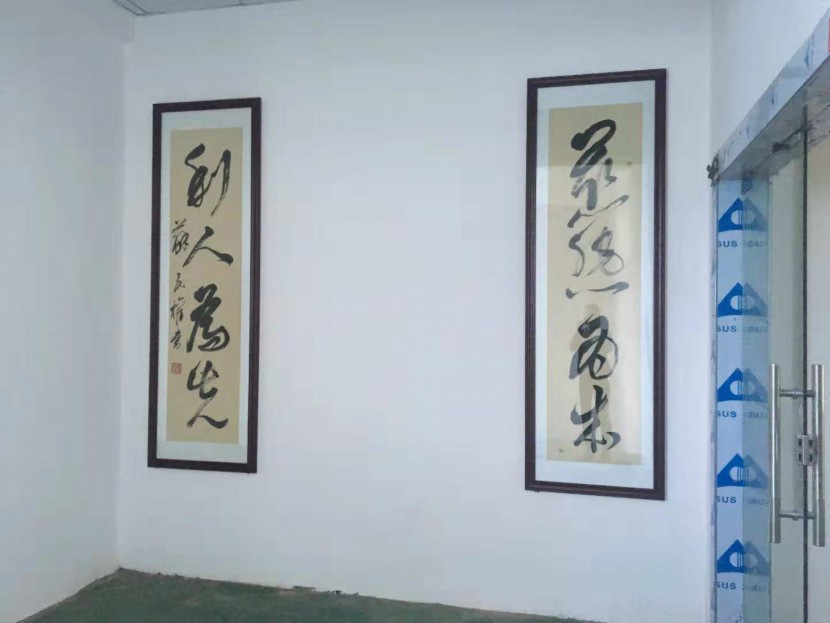 慈悲为本
利人為先
SUS
SUS
SUS
SUS
SUS